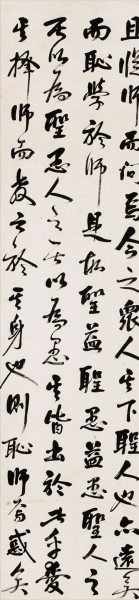 且從師而問焉今之眾人其下聖人也亦遠矣
而恥學於師是故聖益聖愚益愚聖人之
所以為聖愚人之所以為愚其皆出於此乎愛
其擇師而教之於其身也則恥師焉惑矣